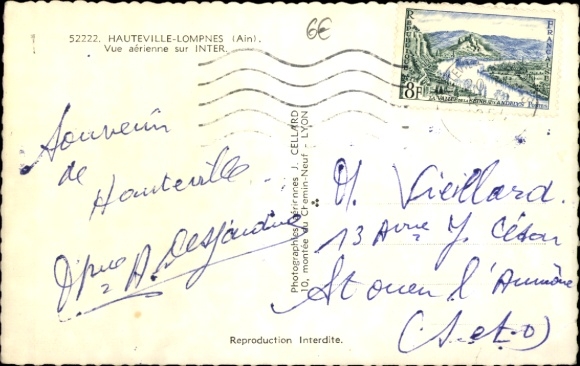 52222. HAUTEVILLE-LOMPNES (Ain).
Vue aérienne sur INTER.
6€
REPUBLIQUE
FRANCAISE
8F
LA VALLEE DE LA SEINE AUX ANDELYS POSTES
Souvenir
de
Hauteville
A. Desjardins
Photographies aériennes J. CELLARD
10, montée du Chemin-Neuf - LYON
M. Vieillard.
13 Avne J. César
St Ouen l'Aumône
(S. et O)
Reproduction Interdite.